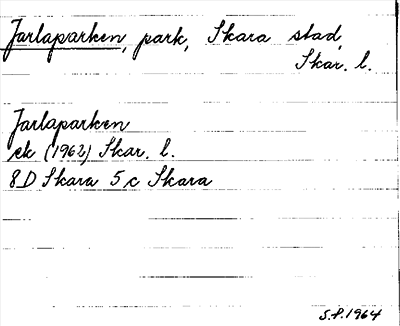 Jarlaparken, park, Skara stad,
Skar. l.
Jarlaparken
ek (1962) Skar. l.
8D Skara 5c Skara
S.P. 1964